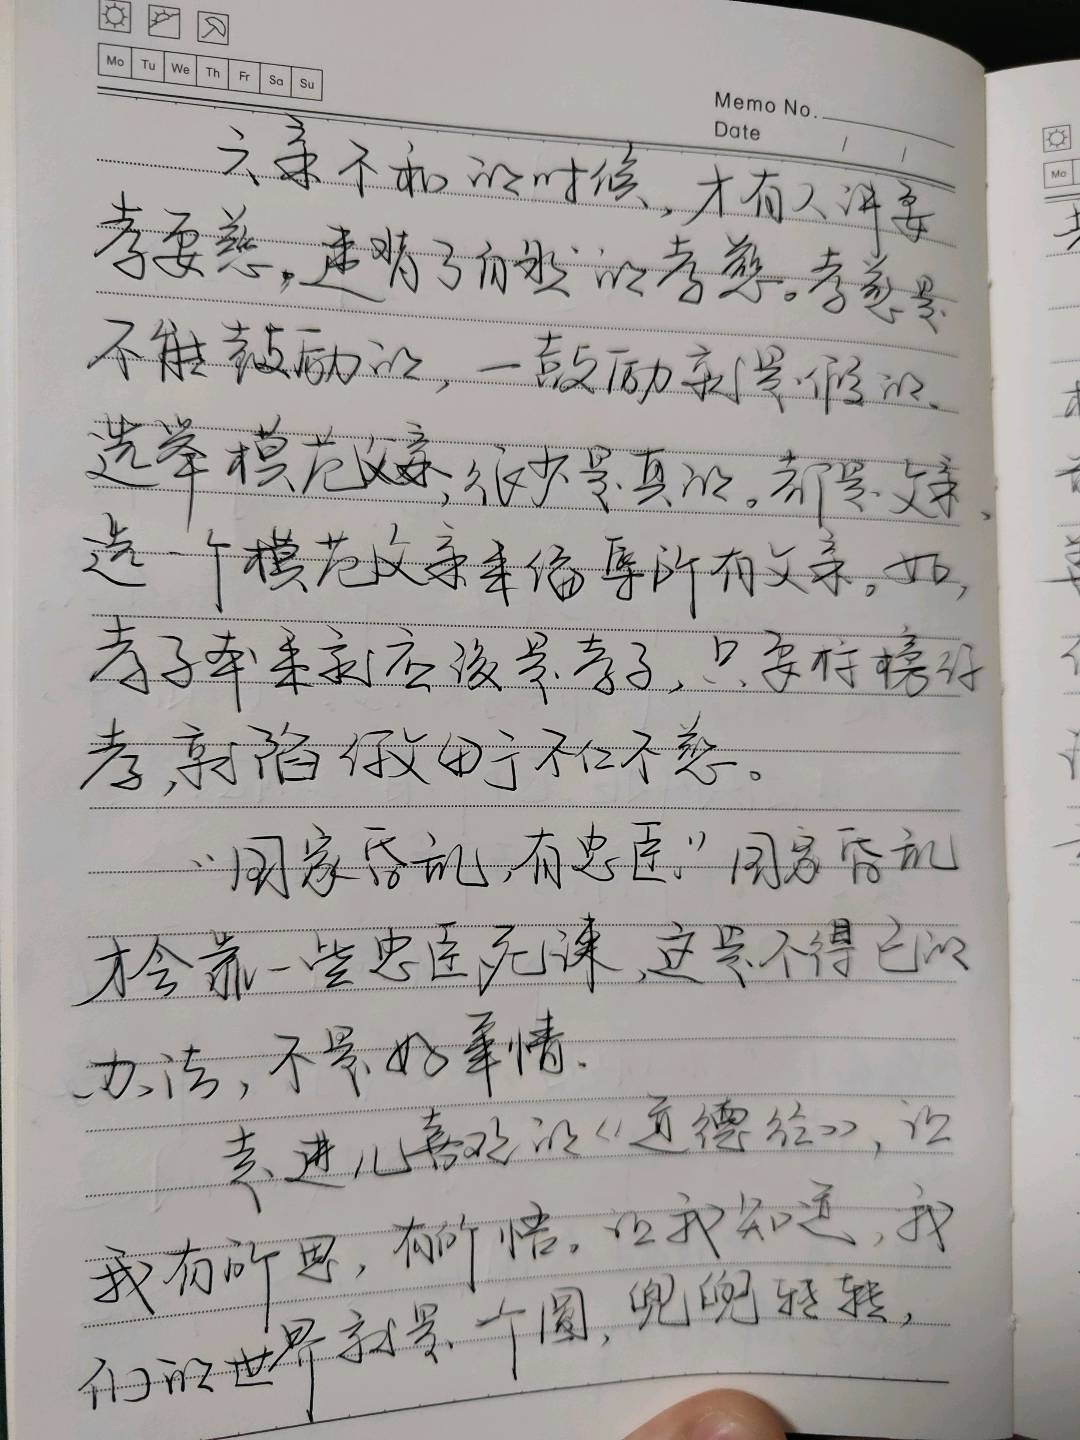 Mo Tu We Th Fr Sa Su
Memo No.
Date / /
六亲不和的时候，才有人讲要
孝要慈，违背了自然的孝慈。孝慈是
不能鼓励的，一鼓励就是假的、
选举模范父亲，很少是真的。都是父亲、
选一个模范父亲来侮辱所有父亲。如，
孝子本来就应该是孝子，只要标榜好
孝，就陷做由于不仁不慈。
"国家昏乱，有忠臣"国家昏乱
才会靠一些忠臣死谏，这是不得已的
办法，不是好事情.
走进儿喜欢的《道德经》，让
我有所思，有所悟。让我知道，我
们的世界就是一个圆，兜兜转转，
Mo